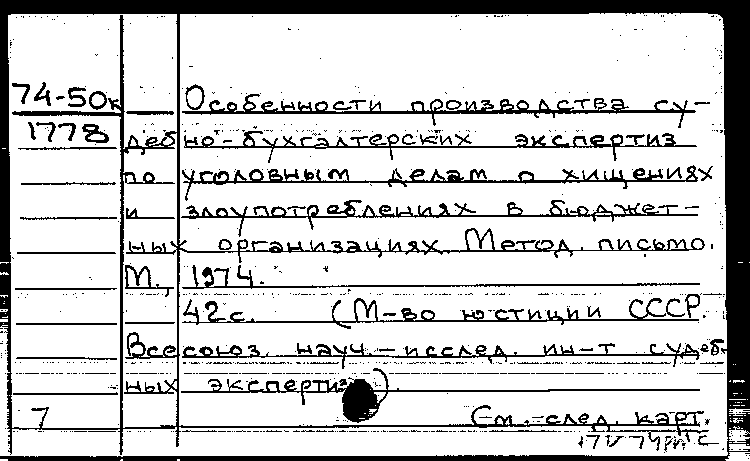 74-50к Особенности производства су-
1778 дебно-бухгалтерских экспертиз
по уголовным делам о хищениях
и злоупотреблениях в бюджет-
ных организациях. Метод. письмо.
М., 1974.
42с. (М-во юстиции СССР.
Всесоюз. науч.-исслед. ин-т судеб-
ных экспертиз).
7 См. след. карт.
17 V 74